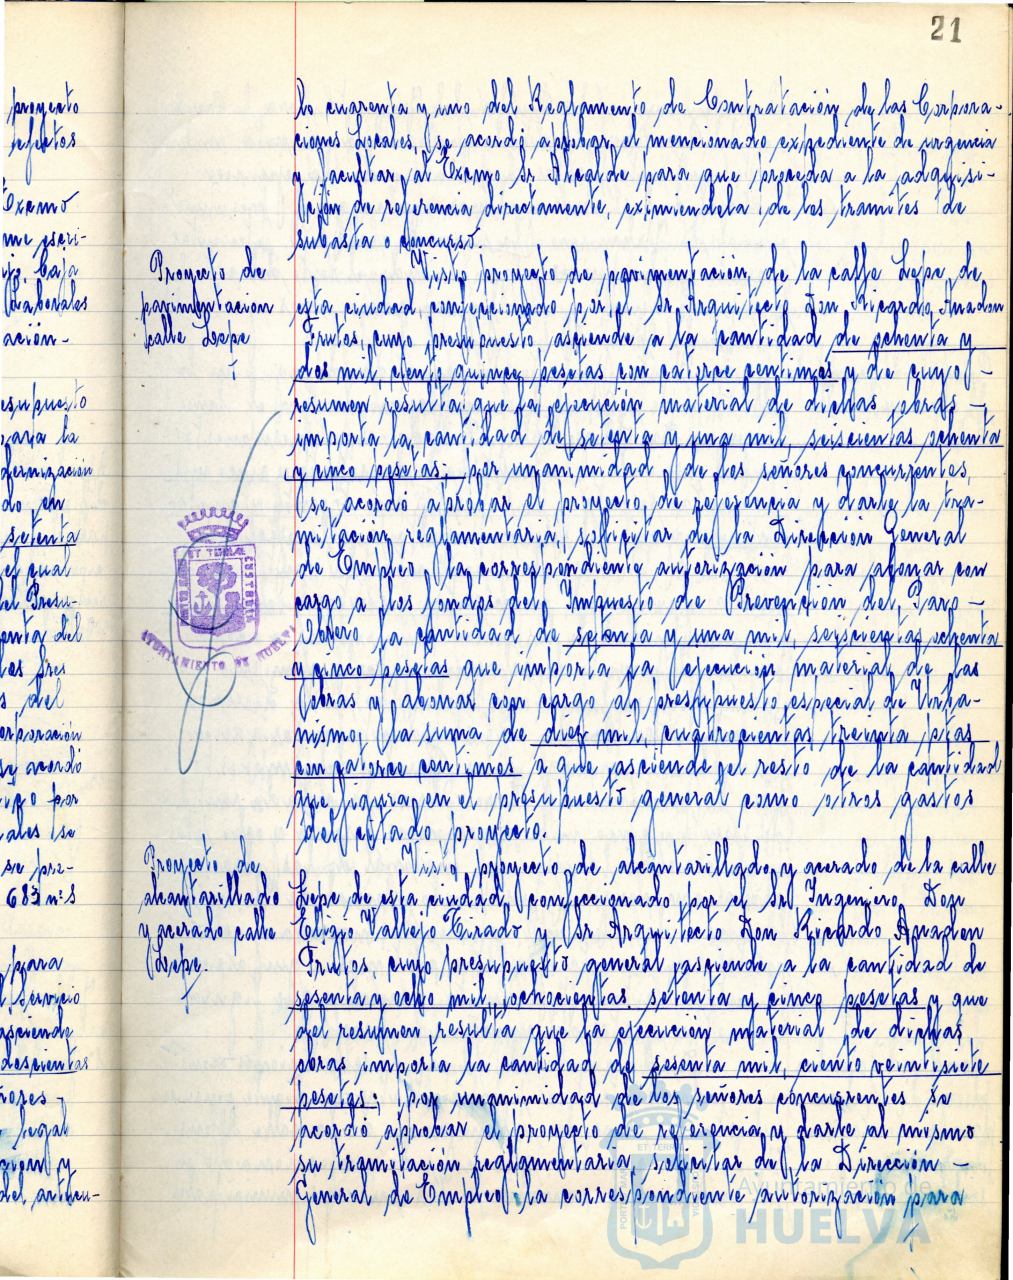 21
proyecto
Excmo
me escri-
baja
Laborales
ación-
esupuesto
para la
dernización
do, en
setenta
el cual
del Presu-
enta del
les tres
s del
orporación
se acordó
po por
ales se
se pre-
683 n.s
para
Servicio
asciende
doscientas
ñores-
legal
ción y
del artícu-
lo cuarenta y uno del Reglamento de Contratación de las Corpora-
ciones Locales, se acordó aprobar el mencionado expediente de urgencia
y facultar al Excmo Sr Alcalde para que proceda a la adquisi-
ción de referencia directamente, eximiendola de los tramites de
subasta o concurso.
Proyecto de
pavimentacion
calle Lepe
Visto proyecto de pavimentación de la calle Lepe de
esta ciudad, confeccionado por el Sr Arquitecto Don Ricardo Anadon
Frutos, cuyo presupuesto asciende a la cantidad de ochenta y
dos mil, ciento quince pesetas con catorce centimos y de cuyo -
resumen resulta que la ejecución material de dichas obras -
importa la cantidad de setenta y una mil, seiscientas ochenta
y cinco pesetas; por unanimidad de los señores concurrentes,
se acordó aprobar el proyecto de referencia y darle la tra-
mitación reglamentaria, solicitar de la Dirección General
de Empleo la correspondiente autorización para abonar con
cargo a los fondos del Impuesto de Prevención del Paro -
Obrero la cantidad de setenta y una mil, seiscientas ochenta
y cinco pesetas que importa la ejecución material de las
obras y abonar con cargo al presupuesto especial de Urba-
nismo, la suma de diez mil, cuatrocientas treinta ptas
con catorce centimos a que asciende el resto de la cantidad
que figura en el presupuesto general como otros gastos
del citado proyecto.
Proyecto de
alcantarillado
y acerado calle
Lepe.
Visto proyecto de alcantarillado y acerado de la calle
Lepe de esta ciudad, confeccionado por el Sr Ingeniero Don
Eligio Vallejo Tirado y Sr Arquitecto Don Ricardo Anadon
Frutos, cuyo presupuesto general asciende a la cantidad de
sesenta y ocho mil, ochocientas setenta y cinco pesetas y que
del resumen resulta que la ejecución material de dichas
obras importa la cantidad de sesenta mil, ciento veintisiete
pesetas; por unanimidad de los señores concurrentes se
acordó aprobar el proyecto de referencia y darle al mismo
su tramitación reglamentaria, solicitar de la Dirección -
General de Empleo la correspondiente autorización para
AYUNTAMIENTO DE HUELVA
Ayuntamiento de
HUELVA